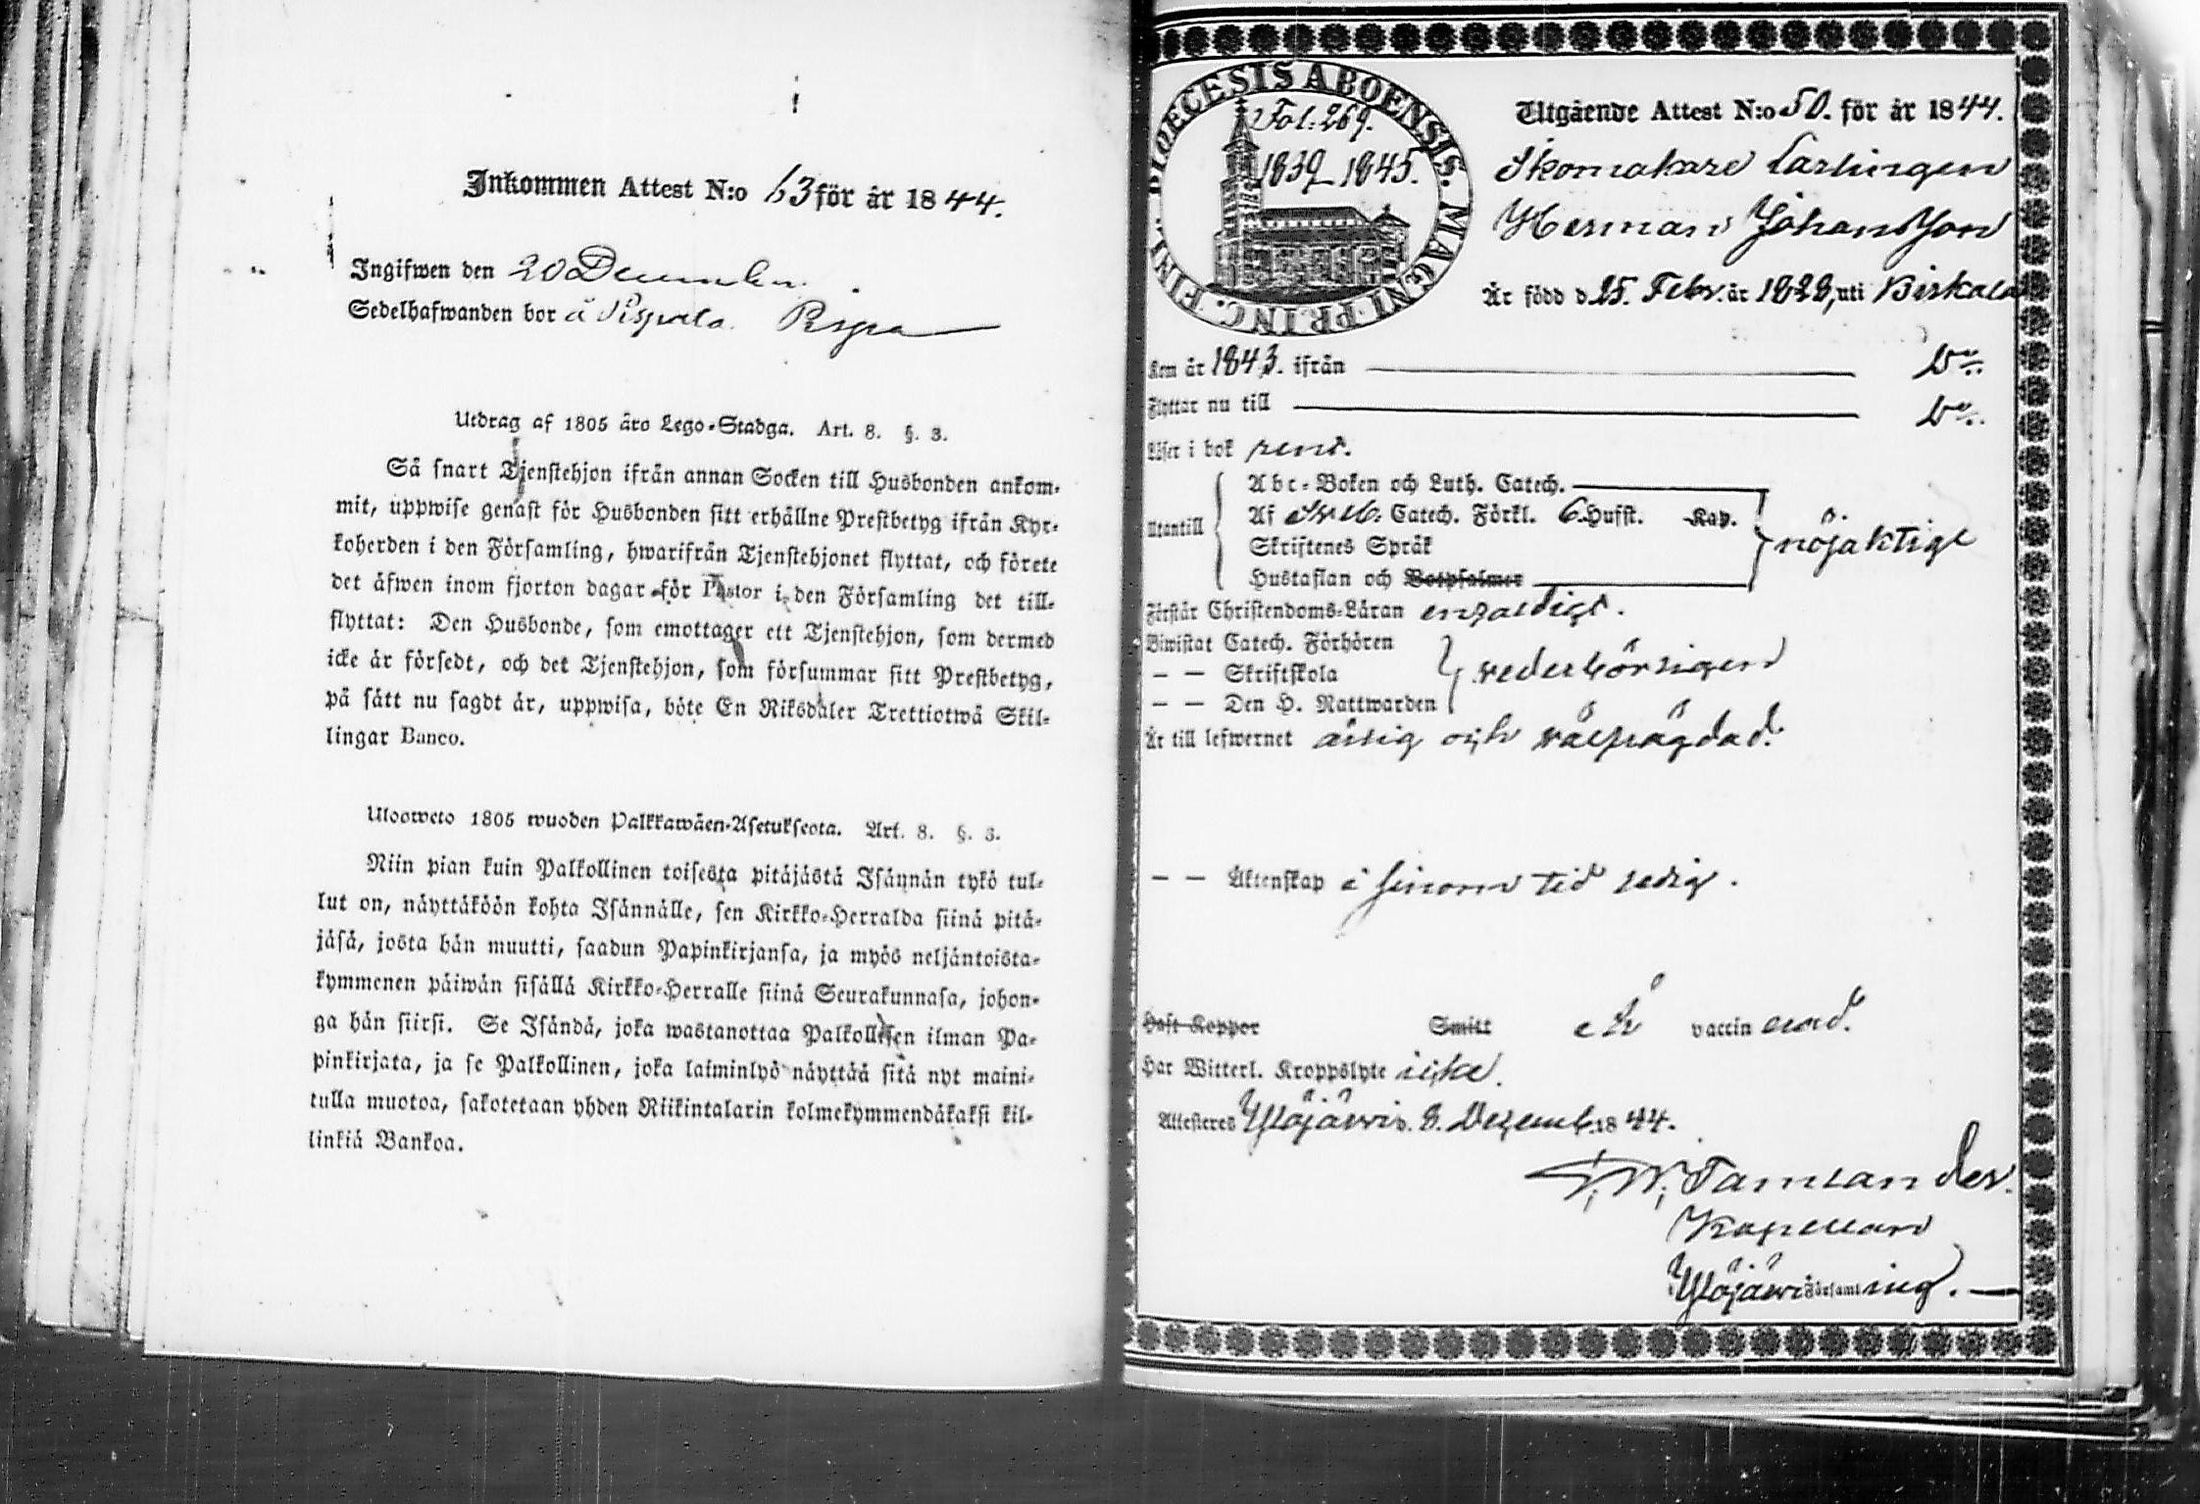 Inkommen Attest N:o 63 för år 1844.
Ingifwen den 20 December.
Sedelhafwanden bor å Pispala.
Utdrag af 1805 åro Lego-Stadga. Art. 8. §. 3.
Så snart Tjenstehjon ifrån annan Socken till Husbonden ankom-
mit, uppwise genast för Husbonden sitt erhållne Prestbetyg ifrån Kyr-
koherden i den Församling, hwarifrån Tjenstehjonet flyttat, och förete
det åfwen inom fjorton dagar för Pastor i den Församling det till-
flyttat: Den Husbonde, som emottager ett Tjenstehjon, som dermed
icke år försedt, och det Tjenstehjon, som försummar sitt Prestbetyg,
på sått nu sagdt år, uppwisa, böte En Riksdaler Trettiotwå Skil-
lingar Banco.
Ulosweto 1805 wuoden Palkkawåen-Asetuksesta. Art. 8. §. 3.
Niin pian kuin Palkollinen toisesta pitåjåstå Isånnån tykö tul-
lut on, nåyttåköön kohta Isånnålle, sen Kirkko-Herralda siinå pitå-
jåså, josta hån muutti, saadun Papinkirjansa, ja myös neljåntoista-
kymmenen påiwån sisållå Kirkko-Herralle siinå Seurakunnasa, johon-
ga hån siirsi. Se Isåndå, joka wastanottaa Palkollisen ilman Pa-
pinkirjata, ja se Palkollinen, joka laiminlyö nåyttåå sitå nyt maini-
tulla muotoa, sakotetaan yhden Riikintalarin kolmekymmendåkaksi kil-
linkiå Bankoa.
DIOECESIS ABOENSIS. MAGNI PRINC. FINL.
Fol: 269.
1839–1845.
Utgående Attest N:o 50. för år 1844.
Skomakare Lärlingen
Herman Johansson
Är född d. 25. Febr. år 1828, uti Birkala
Kom år 1843. ifrån Do.
Flyttar nu till Do.
Låser i bok rent.
Utantill
Abc-Boken och Luth. Catech.
Af Sveb. Catech. Förkl. 6. Hufst. Kap.
Skriftenes Språk
Hustaflan och Botpsalmer
nöjaktigt
Förstår Christendoms-Låran enfaldigt.
Biwistat Catech. Förhören
— — Skriftskola
— — Den H. Nattwarden
vederbörligen
År till lefwernet ärlig och välfrägdad.
— — Åktenskap i sinom tid ledig.
Haft Koppor Smitt är vaccinerad.
Har Witterl. Kroppslyte icke.
Attesteres Ylöjärvi. 8. Dezemb. 1844.
Tamlander.
Kapellan
Ylöjärvi Församling.